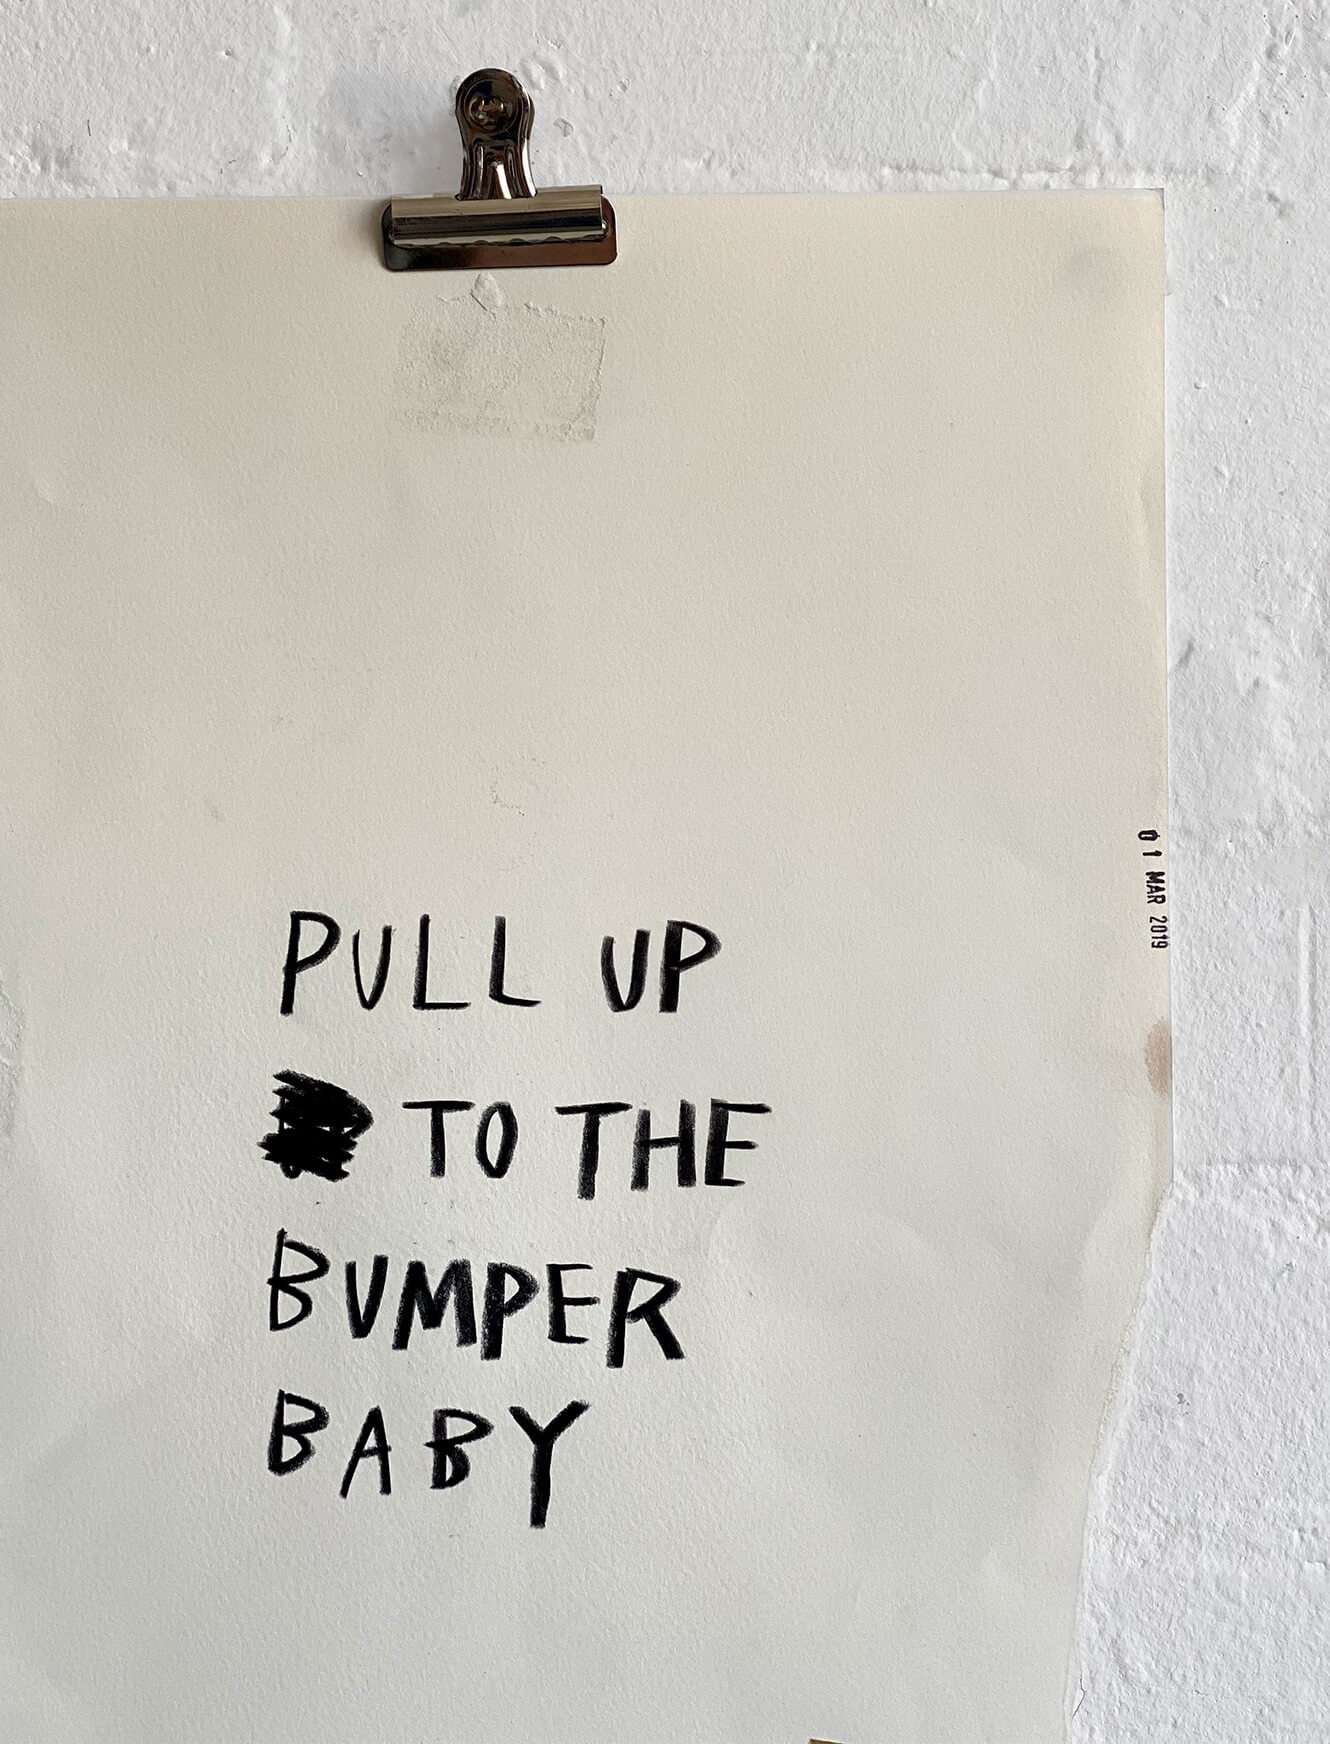 PULL UP
TO THE
BUMPER
BABY
01 MAR 2019